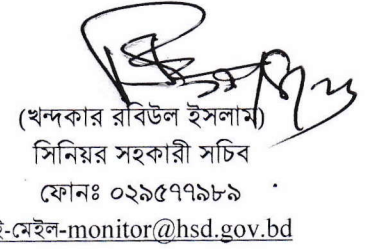 (খন্দকার রবিউল ইসলাম)
সিনিয়র সহকারী সচিব
ফোনঃ ০২৯৫৭৭৯৮৯
ই-মেইল-monitor@hsd.gov.bd